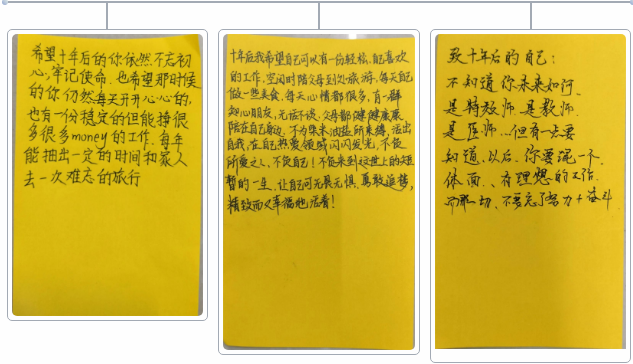 希望十年后的你依然不忘初
心,牢记使命.也希望那时候
的你仍然每天开开心心的,
也有一份稳定的但能挣很
多很多money的工作.每年
能抽出一定的时间和家人
去一次难忘的旅行
十年后我希望自己可以有一份轻松,自己喜欢
的工作.空闲时陪父母到处旅游,每天自己
做一些美食,每天心情都很多,有一群
知心朋友,无话不谈,父母都健健康康
陪在自己身边,不为柴米油盐所束缚,活出
自我,在自己热爱领域闪闪发光,不负
所爱之人,不负自己!不负来到这世上的短
暂的一生,让自己可无畏无惧,勇敢追梦,
精致而又幸福地活着!
致十年后的自己:
不知道你未来如何.
是特教师.是教师.
是医师...但有一点要
知道、以后.你要混一个
体面、有理想的工作.
一切、不要忘了努力+奋斗